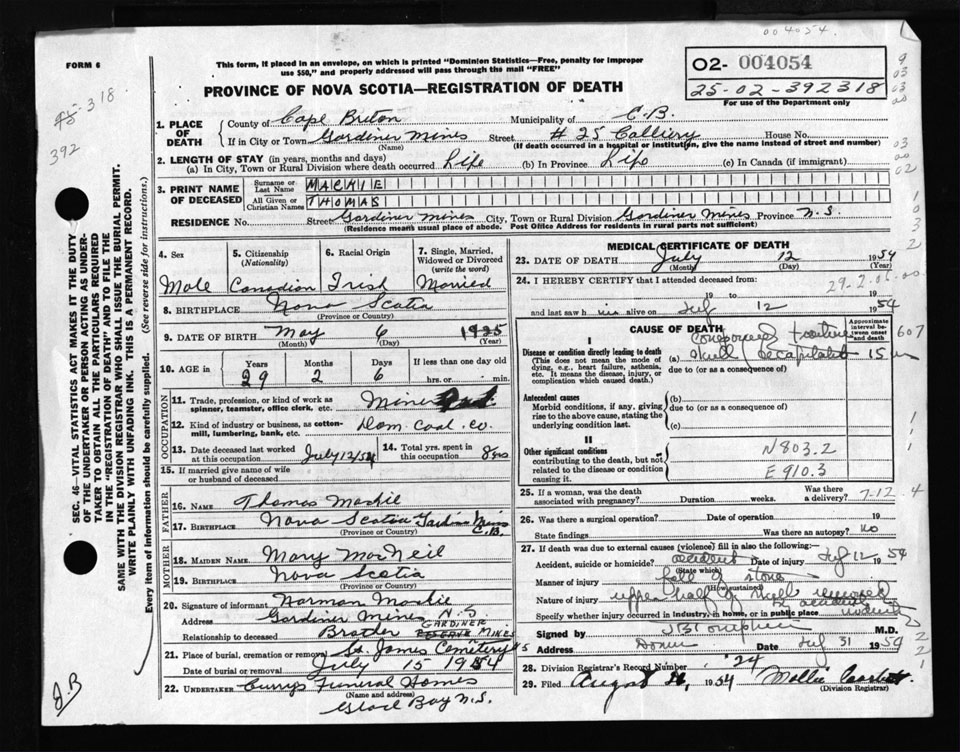 004054
FORM 6
This form, if placed in an envelope, on which is printed "Dominion Statistics—Free, penalty for improper
use $50," and properly addressed will pass through the mail "FREE"
O2- 004054
25-02-392318
For use of the Department only
PROVINCE OF NOVA SCOTIA—REGISTRATION OF DEATH
318
392
1. PLACE OF DEATH
County of Cape Breton Municipality of C.B.
If in City or Town Gardiner Mines Street # 25 Colliery House No.
(Name) (If death occurred in a hospital or institution, give the name instead of street and number)
2. LENGTH OF STAY (in years, months and days)
(a) In City, Town or Rural Division where death occurred Life (b) In Province Life (c) In Canada (if immigrant)
3. PRINT NAME OF DECEASED
Surname or Last Name MACKIE
All Given or Christian Names THOMAS
RESIDENCE No. Street Gardiner Mines City, Town or Rural Division Gardiner Mines Province N.S.
(Residence means usual place of abode. Post Office Address for residents in rural parts not sufficient)
4. Sex
Male
5. Citizenship
(Nationality)
Canadian
6. Racial Origin
Irish
7. Single, Married, Widowed or Divorced
(write the word)
Married
8. BIRTHPLACE Nova Scotia
(Province or Country)
9. DATE OF BIRTH May 6 1925
(Month) (Day) (Year)
10. AGE in
Years 29
Months 2
Days 6
If less than one day old
hrs. or min.
OCCUPATION
11. Trade, profession, or kind of work as
spinner, teamster, office clerk, etc. Miner
12. Kind of industry or business, as cotton-
mill, lumbering, bank, etc. Dom. Coal. Co.
13. Date deceased last worked
at this occupation July 12/54
14. Total yrs. spent in
this occupation 8 yrs
15. If married give name of wife
or husband of deceased
FATHER
16. NAME Thomas Mackie
17. BIRTHPLACE Nova Scotia Gardiner Mines
C.B.
MOTHER
18. MAIDEN NAME Mary MacNeil
19. BIRTHPLACE Nova Scotia
(Province or Country)
20. Signature of informant Norman Mackie
Address Gardiner Mines N.S.
GARDINER
Relationship to deceased Brother MINES
21. Place of burial, cremation or removal St. James Cemetery
Date of burial or removal July 15 1954
22. UNDERTAKER Currys Funeral Homes
(Name and address)
Glace Bay N.S.
MEDICAL CERTIFICATE OF DEATH
23. DATE OF DEATH July 12 1954
(Month) (Day) (Year)
24. I HEREBY CERTIFY that I attended deceased from:
19 to 19
and last saw h alive on 12 1954
CAUSE OF DEATH
Approximate interval between onset and death
I
Disease or condition directly leading to death
(This does not mean the mode of dying, e.g., heart failure, asthenia, etc. It means the disease, injury, or complication which caused death.)
(a) skull
due to (or as a consequence of)
15
607
Antecedent causes
Morbid conditions, if any, giving rise to the above cause, stating the underlying condition last.
(b)
due to (or as a consequence of)
(c)
II
Other significant conditions
contributing to the death, but not related to the disease or condition causing it.
N803.2
E910.3
25. If a woman, was the death
associated with pregnancy? Duration weeks. Was there a delivery?
7-12-4
26. Was there a surgical operation? Date of operation 19
State findings Was there an autopsy? No
27. If death was due to external causes (violence) fill in also the following:—
Accident, suicide or homicide? accident Date of injury 12 1954
(State which)
Manner of injury fall of stone
(How sustained)
Nature of injury upper half of skull removed
Specify whether injury occurred in industry, in home, or in public place
Signed by M.D.
Address Date 31 1954
28. Division Registrar's Record Number 24
29. Filed August 1954 Mollie
(Division Registrar)
SEC. 46—VITAL STATISTICS ACT MAKES IT THE DUTY
OF THE UNDERTAKER OR PERSON ACTING AS UNDER-
TAKER TO OBTAIN ALL THE PARTICULARS REQUIRED
IN THE "REGISTRATION OF DEATH" AND TO FILE THE
SAME WITH THE DIVISION REGISTRAR WHO SHALL ISSUE THE BURIAL PERMIT.
WRITE PLAINLY WITH UNFADING INK. THIS IS A PERMANENT RECORD.
Every item of information should be carefully supplied. (See reverse side for instructions.)